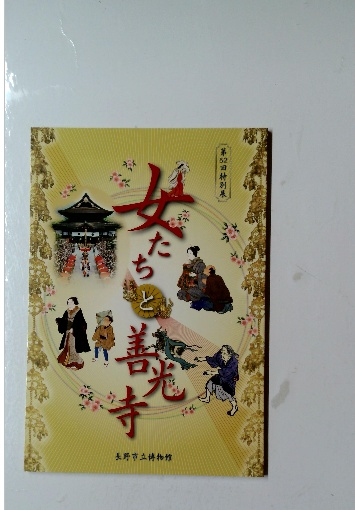 第52回特別展
女たちと善光寺
長野市立博物館